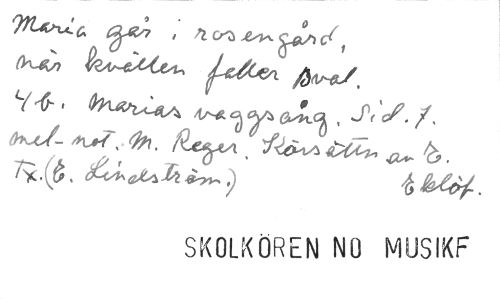 Maria går i rosengård,
när kvällen faller sval.
4b. Marias vaggsång. Sid. 7.
mel-not. M. Reger. Körsättn av E.
Tx. (E. Lindström.) Eklöf.
SKOLKÖREN NO MUSIKF